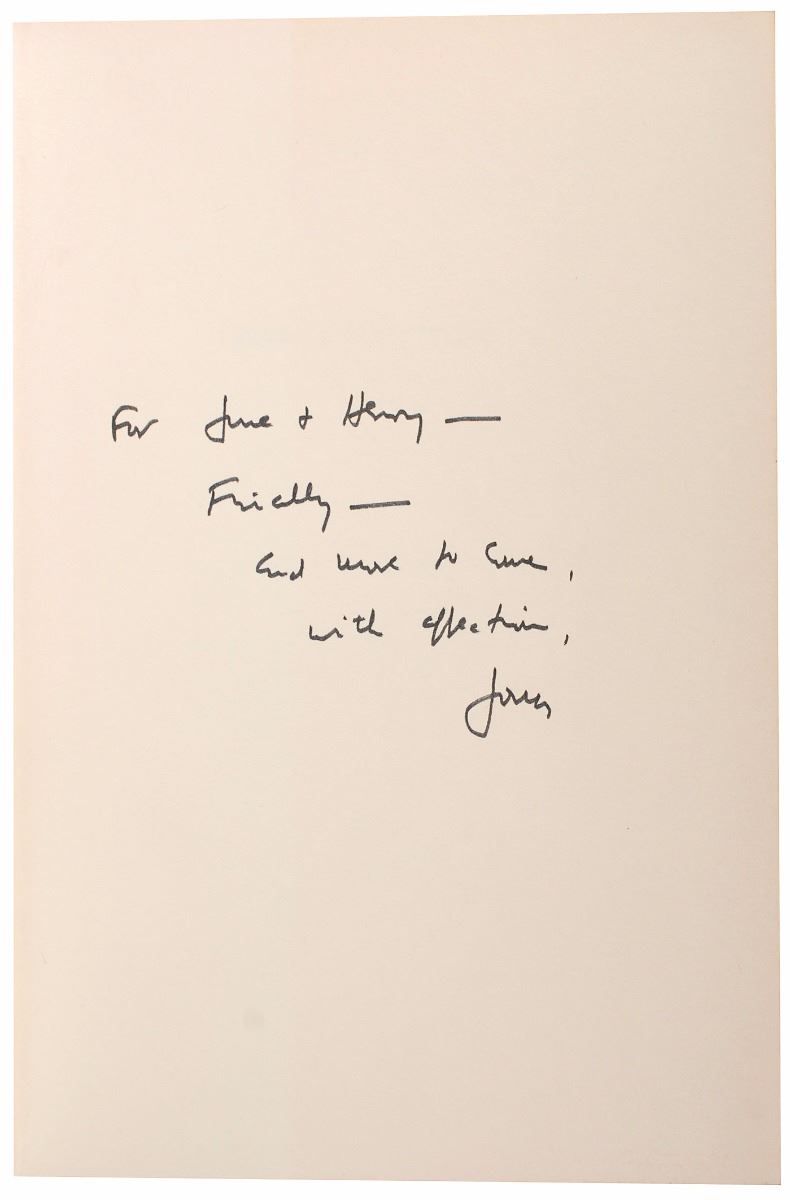 For June + Henry —
Finally —
and more to come,
with affection,